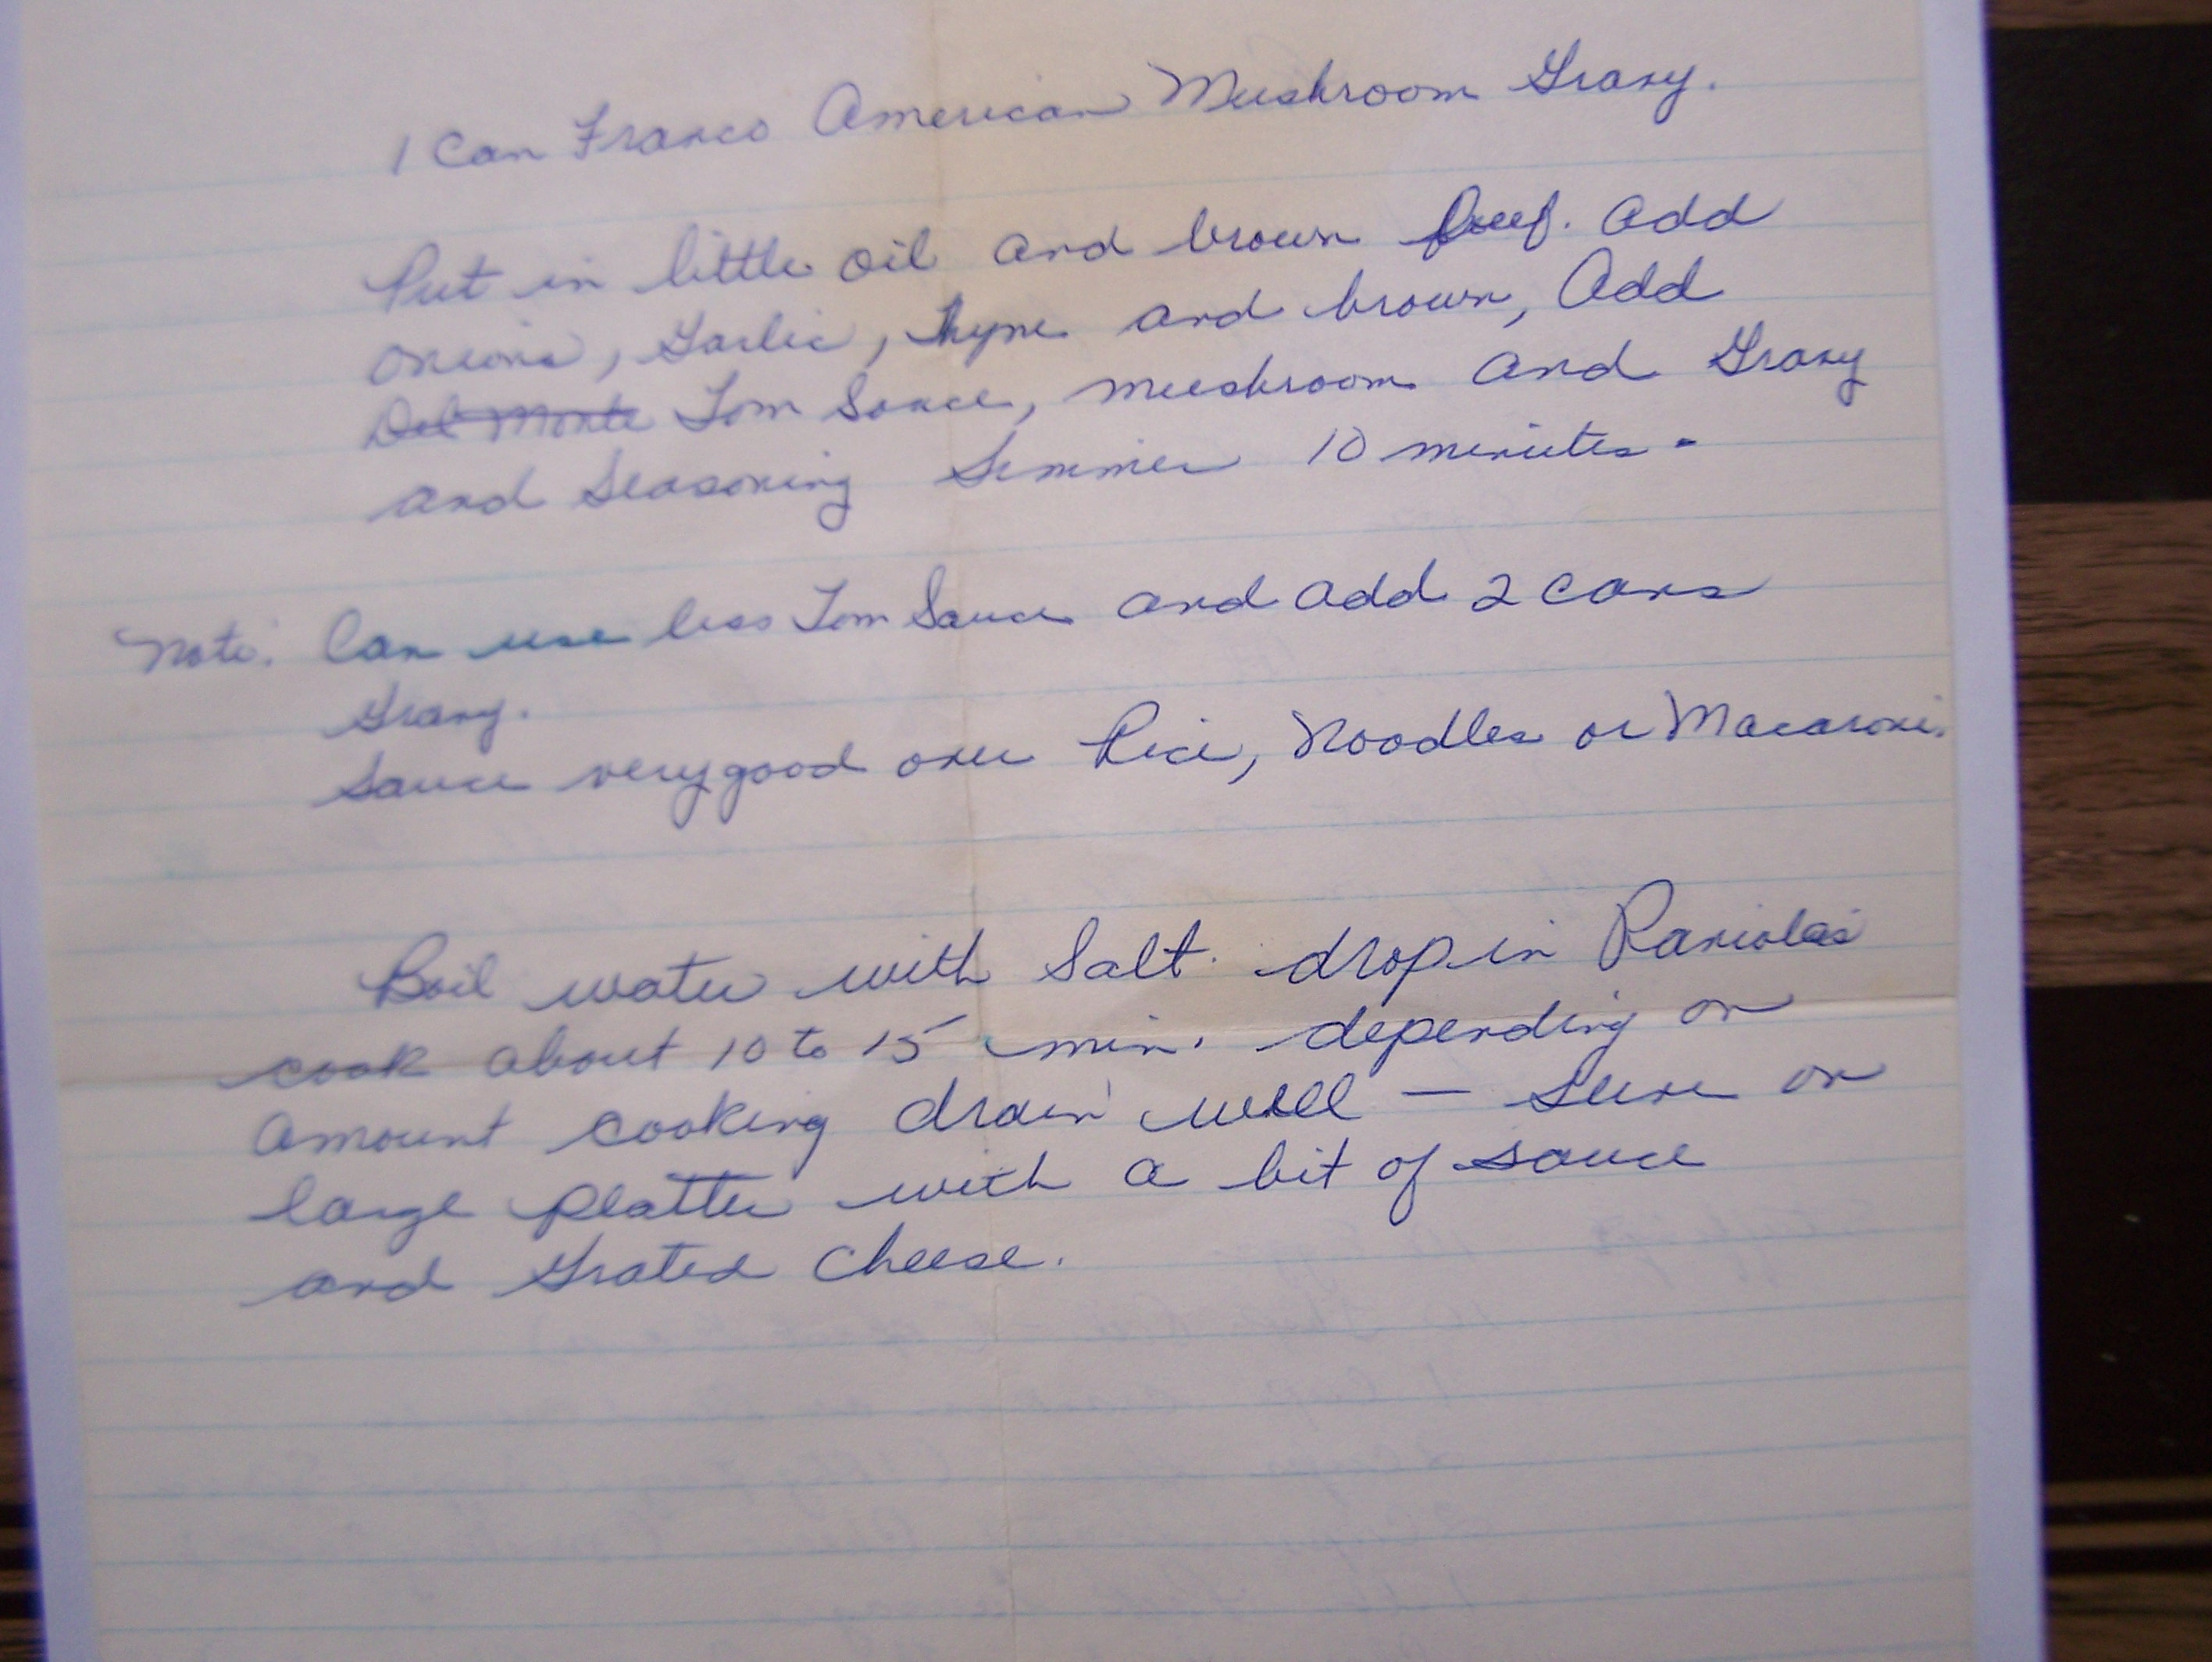 1 Can Franco American Mushroom Gravy.
Put in little oil and brown beef. add
onions, Garlic, thyme and brown, Add
Del Monte Tom Sauce, mushroom and Gravy
and Seasoning Simmer 10 minutes.
Note: Can use less Tom Sauce and add 2 cans
Gravy.
Sauce very good over Rice, Noodles or Macaroni.
Boil water with Salt. drop in
cook about 10 to 15 min. depending on
amount cooking drain well — serve on
large platter with a bit of sauce
and Grated Cheese.